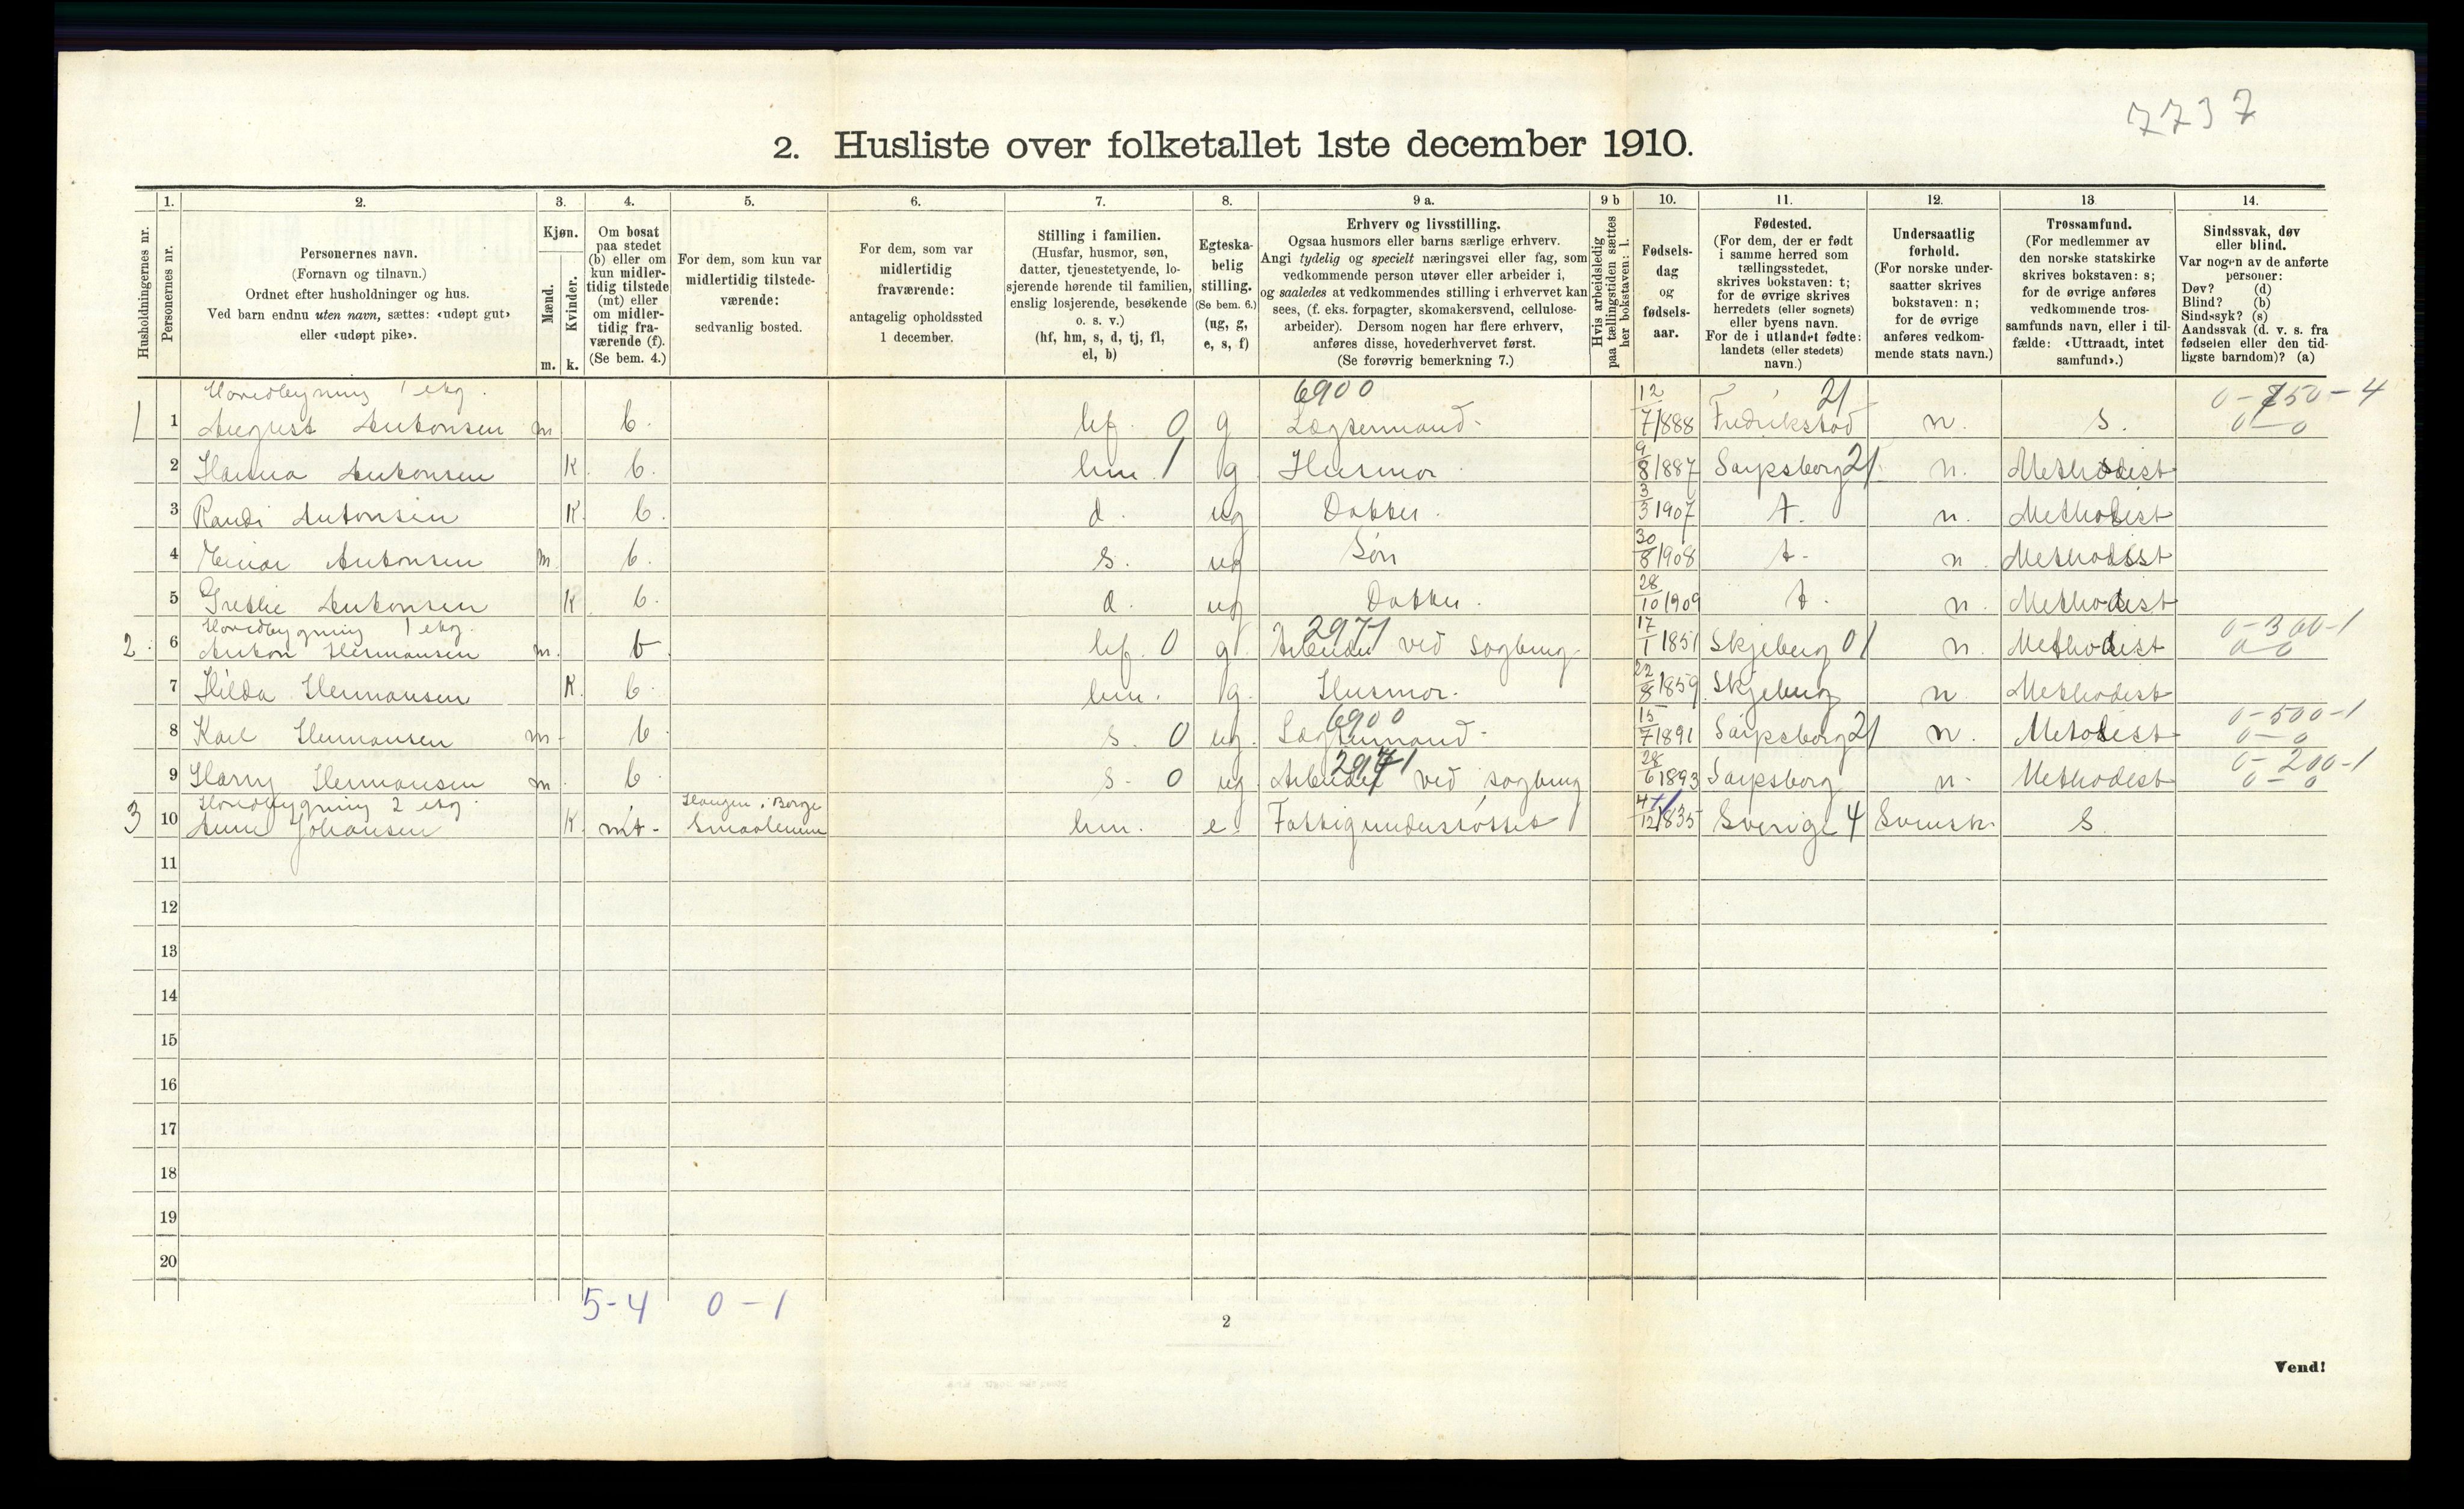 7737
2. Husliste over folketallet 1ste december 1910.
Husholdningernes nr.
1. Personernes nr.
2. Personernes navn.
(Fornavn og tilnavn.)
Ordnet efter husholdninger og hus.
Ved barn endnu uten navn, sættes: «udøpt gut»
eller «udøpt pike».
3. Kjøn.
Mænd. m.
Kvinder. k.
4. Om bosat
paa stedet
(b) eller om
kun midler-
tidig tilstede
(mt) eller
om midler-
tidig fra-
værende (f).
(Se bem. 4.)
5. For dem, som kun var
midlertidig tilstede-
værende:
sedvanlig bosted.
6. For dem, som var
midlertidig
fraværende:
antagelig opholdssted
1 december.
7. Stilling i familien.
(Husfar, husmor, søn,
datter, tjenestetyende, lo-
sjerende hørende til familien,
enslig losjerende, besøkende
o. s. v.)
(hf, hm, s, d, tj, fl,
el, b)
8. Egteska-
belig
stilling.
(Se bem. 6.)
(ug, g,
e, s, f)
9 a. Erhverv og livsstilling.
Ogsaa husmors eller barns særlige erhverv.
Angi tydelig og specielt næringsvei eller fag, som
vedkommende person utøver eller arbeider i,
og saaledes at vedkommendes stilling i erhvervet kan
sees, (f. eks. forpagter, skomakersvend, cellulose-
arbeider). Dersom nogen har flere erhverv,
anføres disse, hovederhvervet først.
(Se forøvrig bemerkning 7.)
9 b Hvis arbeidsledig
paa tællingstiden sættes
her bokstaven: l.
10. Fødsels-
dag
og
fødsels-
aar.
11. Fødested.
(For dem, der er født
i samme herred som
tællingsstedet,
skrives bokstaven: t;
for de øvrige skrives
herredets (eller sognets)
eller byens navn.
For de i utlandet fødte:
landets (eller stedets)
navn.)
12. Undersaatlig
forhold.
(For norske under-
saatter skrives
bokstaven: n;
for de øvrige
anføres vedkom-
mende stats navn.)
13 Trossamfund.
(For medlemmer av
den norske statskirke
skrives bokstaven: s;
for de øvrige anføres
vedkommende tros-
samfunds navn, eller i til-
fælde: «Uttraadt, intet
samfund».)
14. Sindssvak, døv
eller blind.
Var nogen av de anførte
personer:
Døv? (d)
Blind? (b)
Sindssyk? (s)
Aandssvak (d. v. s. fra
fødselen eller den tid-
ligste barndom)? (a)
Hovedbygning 1 etg. 6900 21 0-750-4
1 1 August Antonsen m b. hf. 0 g Lægtermand 12/7 1888 Fredrikstad n. s. 0-0
2 Hanna Antonsen K. b. hm. 1 g Husmor 9/8 1887 Sarpsborg 21 n. Methodist
3 Randi Antonsen K. b. d. ug Datter 3/3 1907 t. n. Methodist
4 Einar Antonsen m. b. s. ug Søn 30/8 1908 t. n Methodist
5 Grethe Antonsen K b. d. ug Datter. 28/10 1909 t. n. Methodist
Hovedbygning 1 etg. 2971 0-300-1
2. 6 Anton Hermansen m. b. hf. 0 g. Arbeider ved sagbrug 17/1 1851 Skjeberg 01 n. Methodist 0-0
7 Hilda Hermansen K. b. hm. g. Husmor. 22/8 1859 Skjeberg n. Methodist
6900 0-500-1
8 Karl Hermansen m. b s. 0 ug. Lægtermand 15/7 1891 Sarpsborg 21 n. Metodist 0-0
2971 0-200-1
9 Harry Hermansen m. b. s. 0 ug Arbeider ved sagbrug 28/6 1893 Sarpsborg n. Methodist 0-0
Hovedbygning 2 etg. Haugen i Borge
3 10 Anne Johansen K. mt. Smaalenene hm. e. Fattigunderstøttet 4/12 1835 Sverige 4 Svensk S.
11
12
13
14
15
16
17
18
19
20
5-4 0-1
2
Vend!